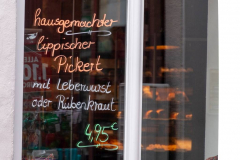 hausgemachter
lippischer
Pickert
mit Leberwurst
oder Rübenkraut
4,95 €